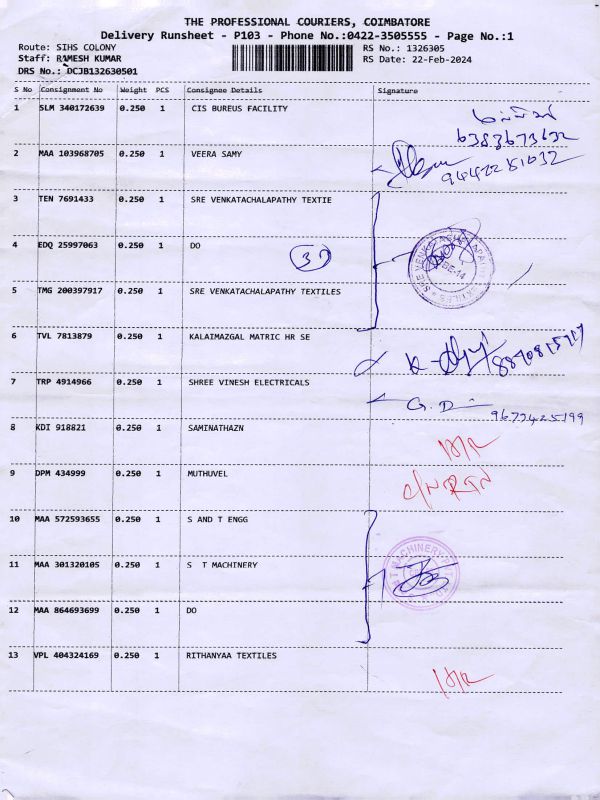 THE PROFESSIONAL COURIERS, COIMBATORE
Delivery Runsheet - P103 - Phone No.:0422-3505555 - Page No.:1
Route: SIHS COLONY
RS No.: 1326305
Staff: RAMESH KUMAR
RS Date: 22-Feb-2024
DRS No.: DCJB132630501
S No Consignment No Weight PCS Consignee Details Signature
1 SLM 340172639 0.250 1 CIS BUREUS FACILITY
6383673632
2 MAA 103968705 0.250 1 VEERA SAMY
9442281032
3 TEN 7691433 0.250 1 SRE VENKATACHALAPATHY TEXTIE
4 EDQ 25997063 0.250 1 DO
5 TMG 200397917 0.250 1 SRE VENKATACHALAPATHY TEXTILES
6 TVL 7813879 0.250 1 KALAIMAZGAL MATRIC HR SE
7 TRP 4914966 0.250 1 SHREE VINESH ELECTRICALS
G.D
8 KDI 918821 0.250 1 SAMINATHAZN
9 DPM 434999 0.250 1 MUTHUVEL
10 MAA 572593655 0.250 1 S AND T ENGG
11 MAA 301320105 0.250 1 S T MACHINERY
12 MAA 864693699 0.250 1 DO
13 VPL 404324169 0.250 1 RITHANYAA TEXTILES